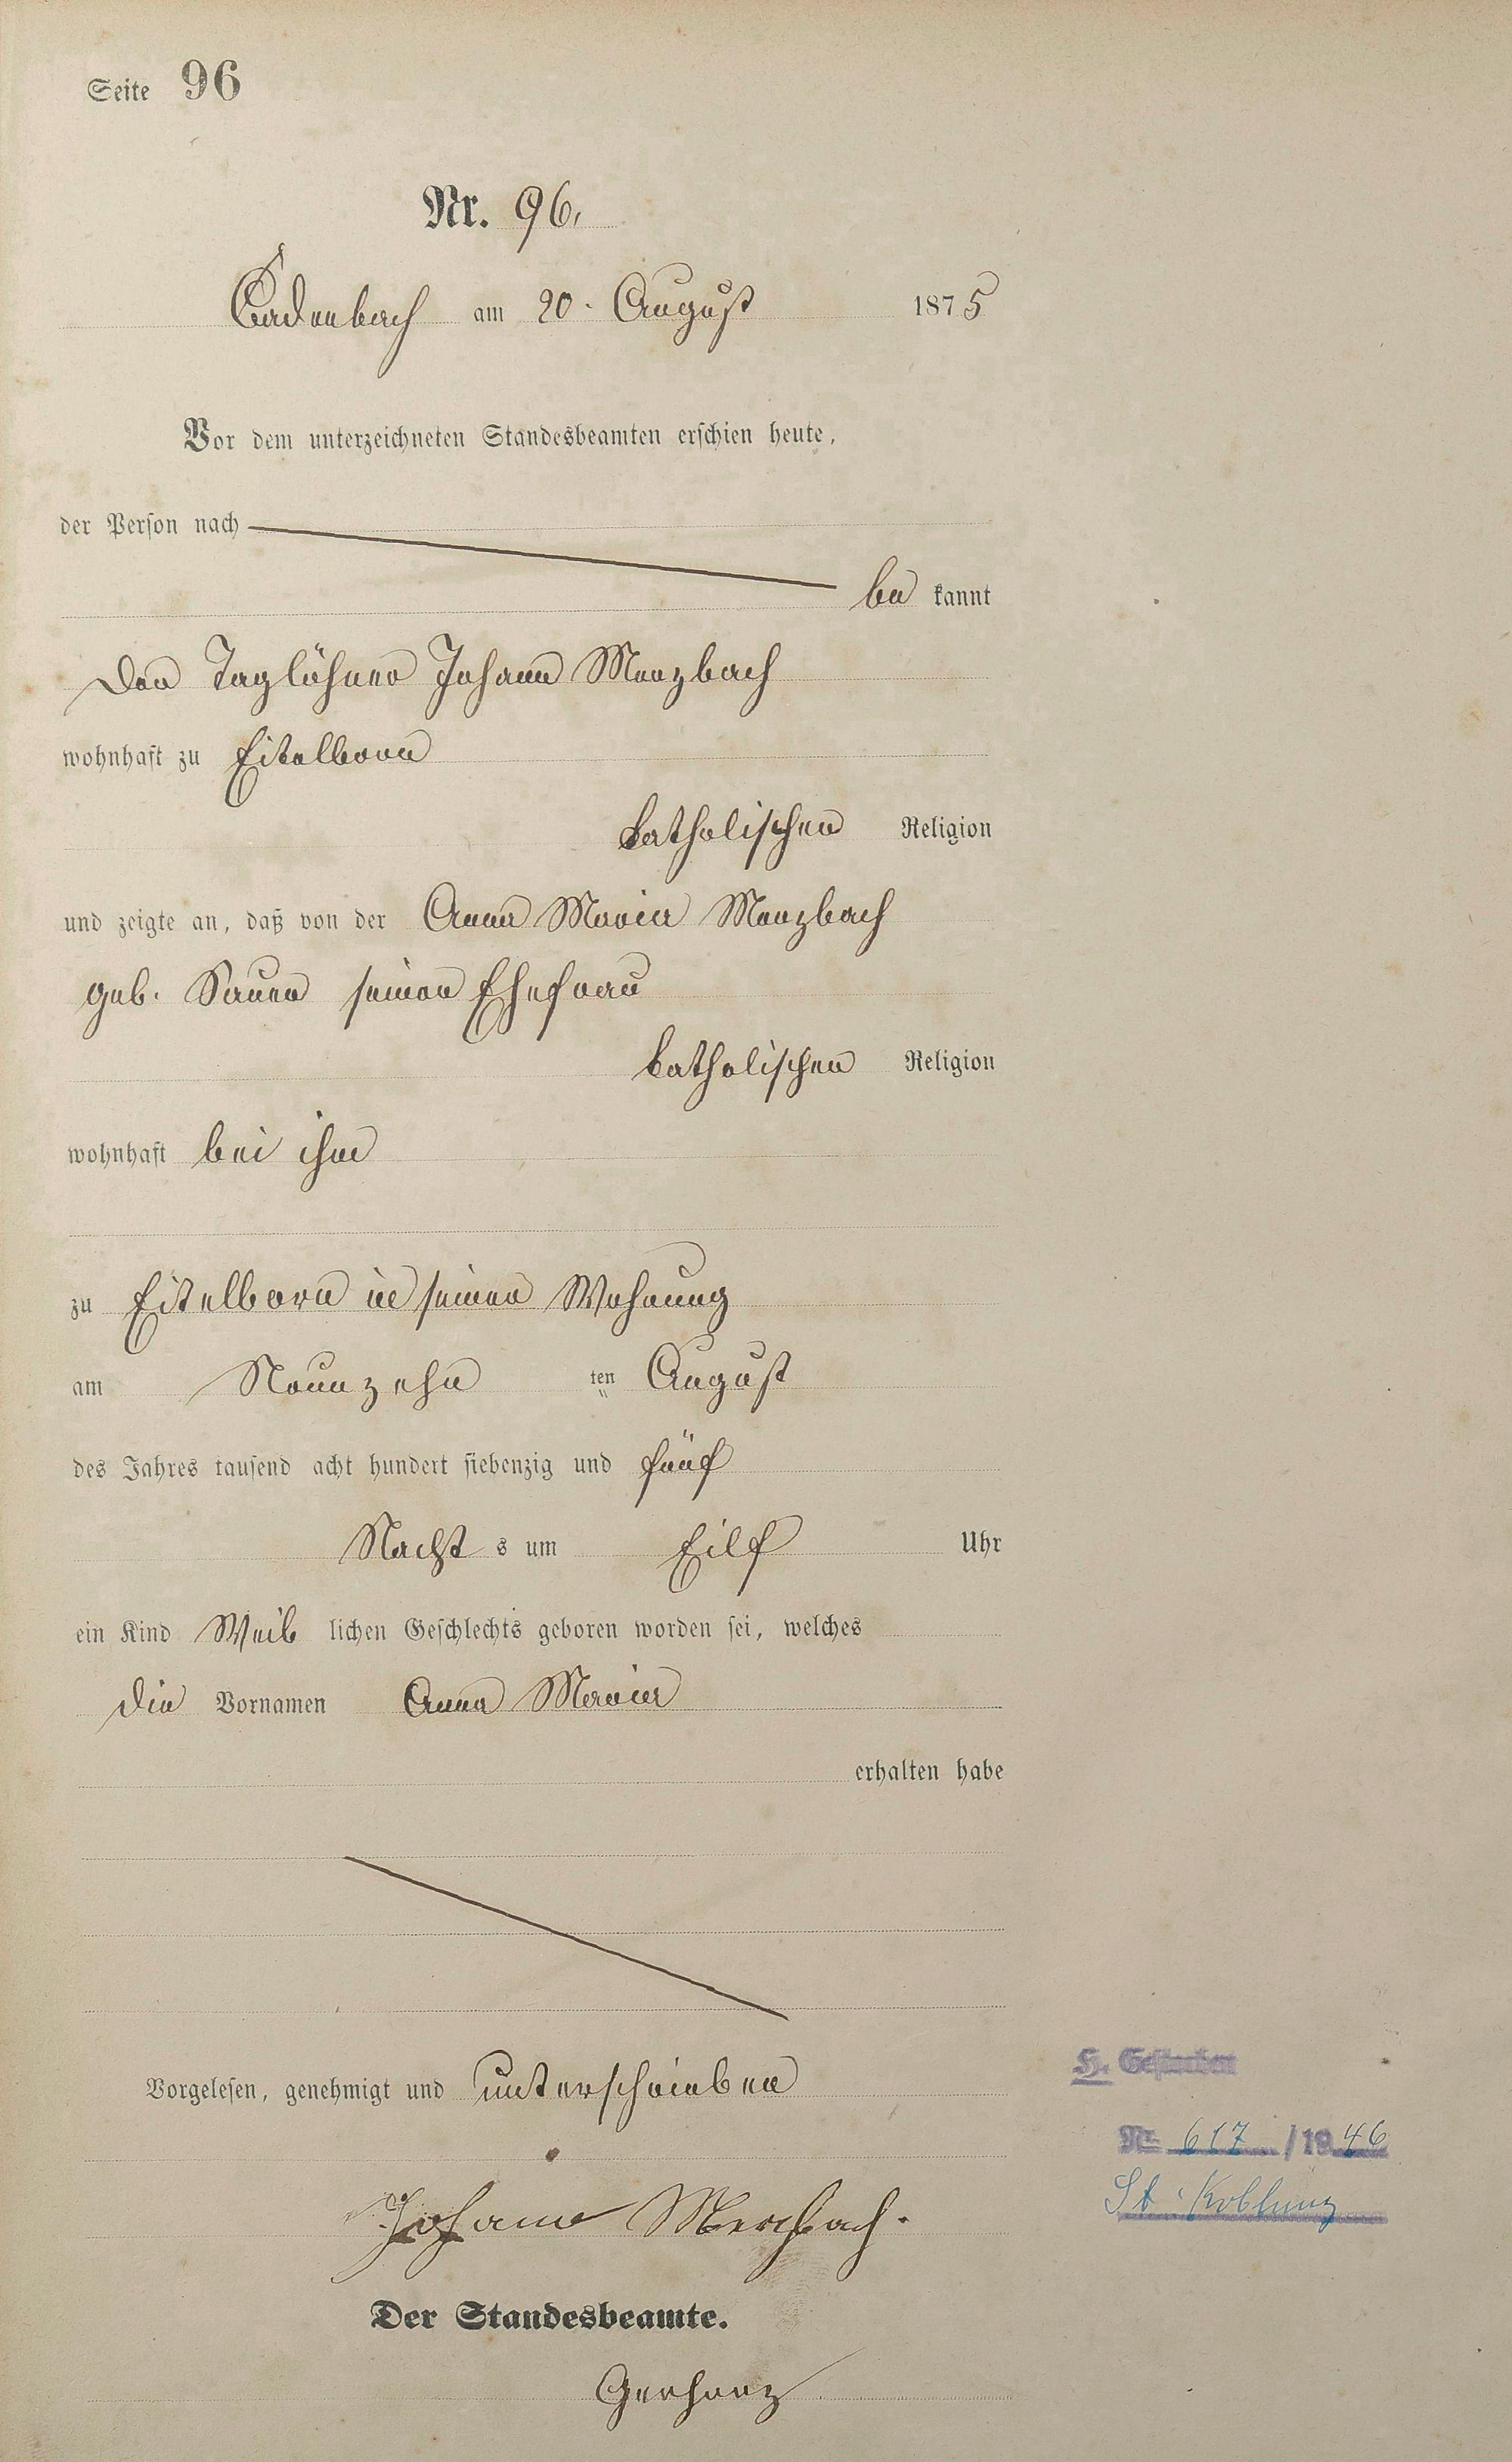 Seite 96
Nr. 96.
Cadenbach am 20. August 1875
Vor dem unterzeichneten Standesbeamten erschien heute,
der Person nach
be kannt
Der Taglöhner Johann Merzbach
wohnhaft zu Eitelborn
katholischer Religion
und zeigte an, daß von der Anna Maria Merzbach
geb. seiner Ehefrau
katholischer Religion
wohnhaft bei ihm
zu Eitelborn in seiner Wohnung
am Neunzehn ten August
des Jahres tausend acht hundert siebenzig und fünf
Nacht s um Eilf Uhr
ein Kind Weib lichen Geschlechts geboren worden sei, welches
die Vornamen Anna Maria
erhalten habe
Vorgelesen, genehmigt und unterschrieben
Johann Merzbach.
Der Standesbeamte.
Gerharz
H. Gestorben
Nr. 617 / 1946
St. Koblenz